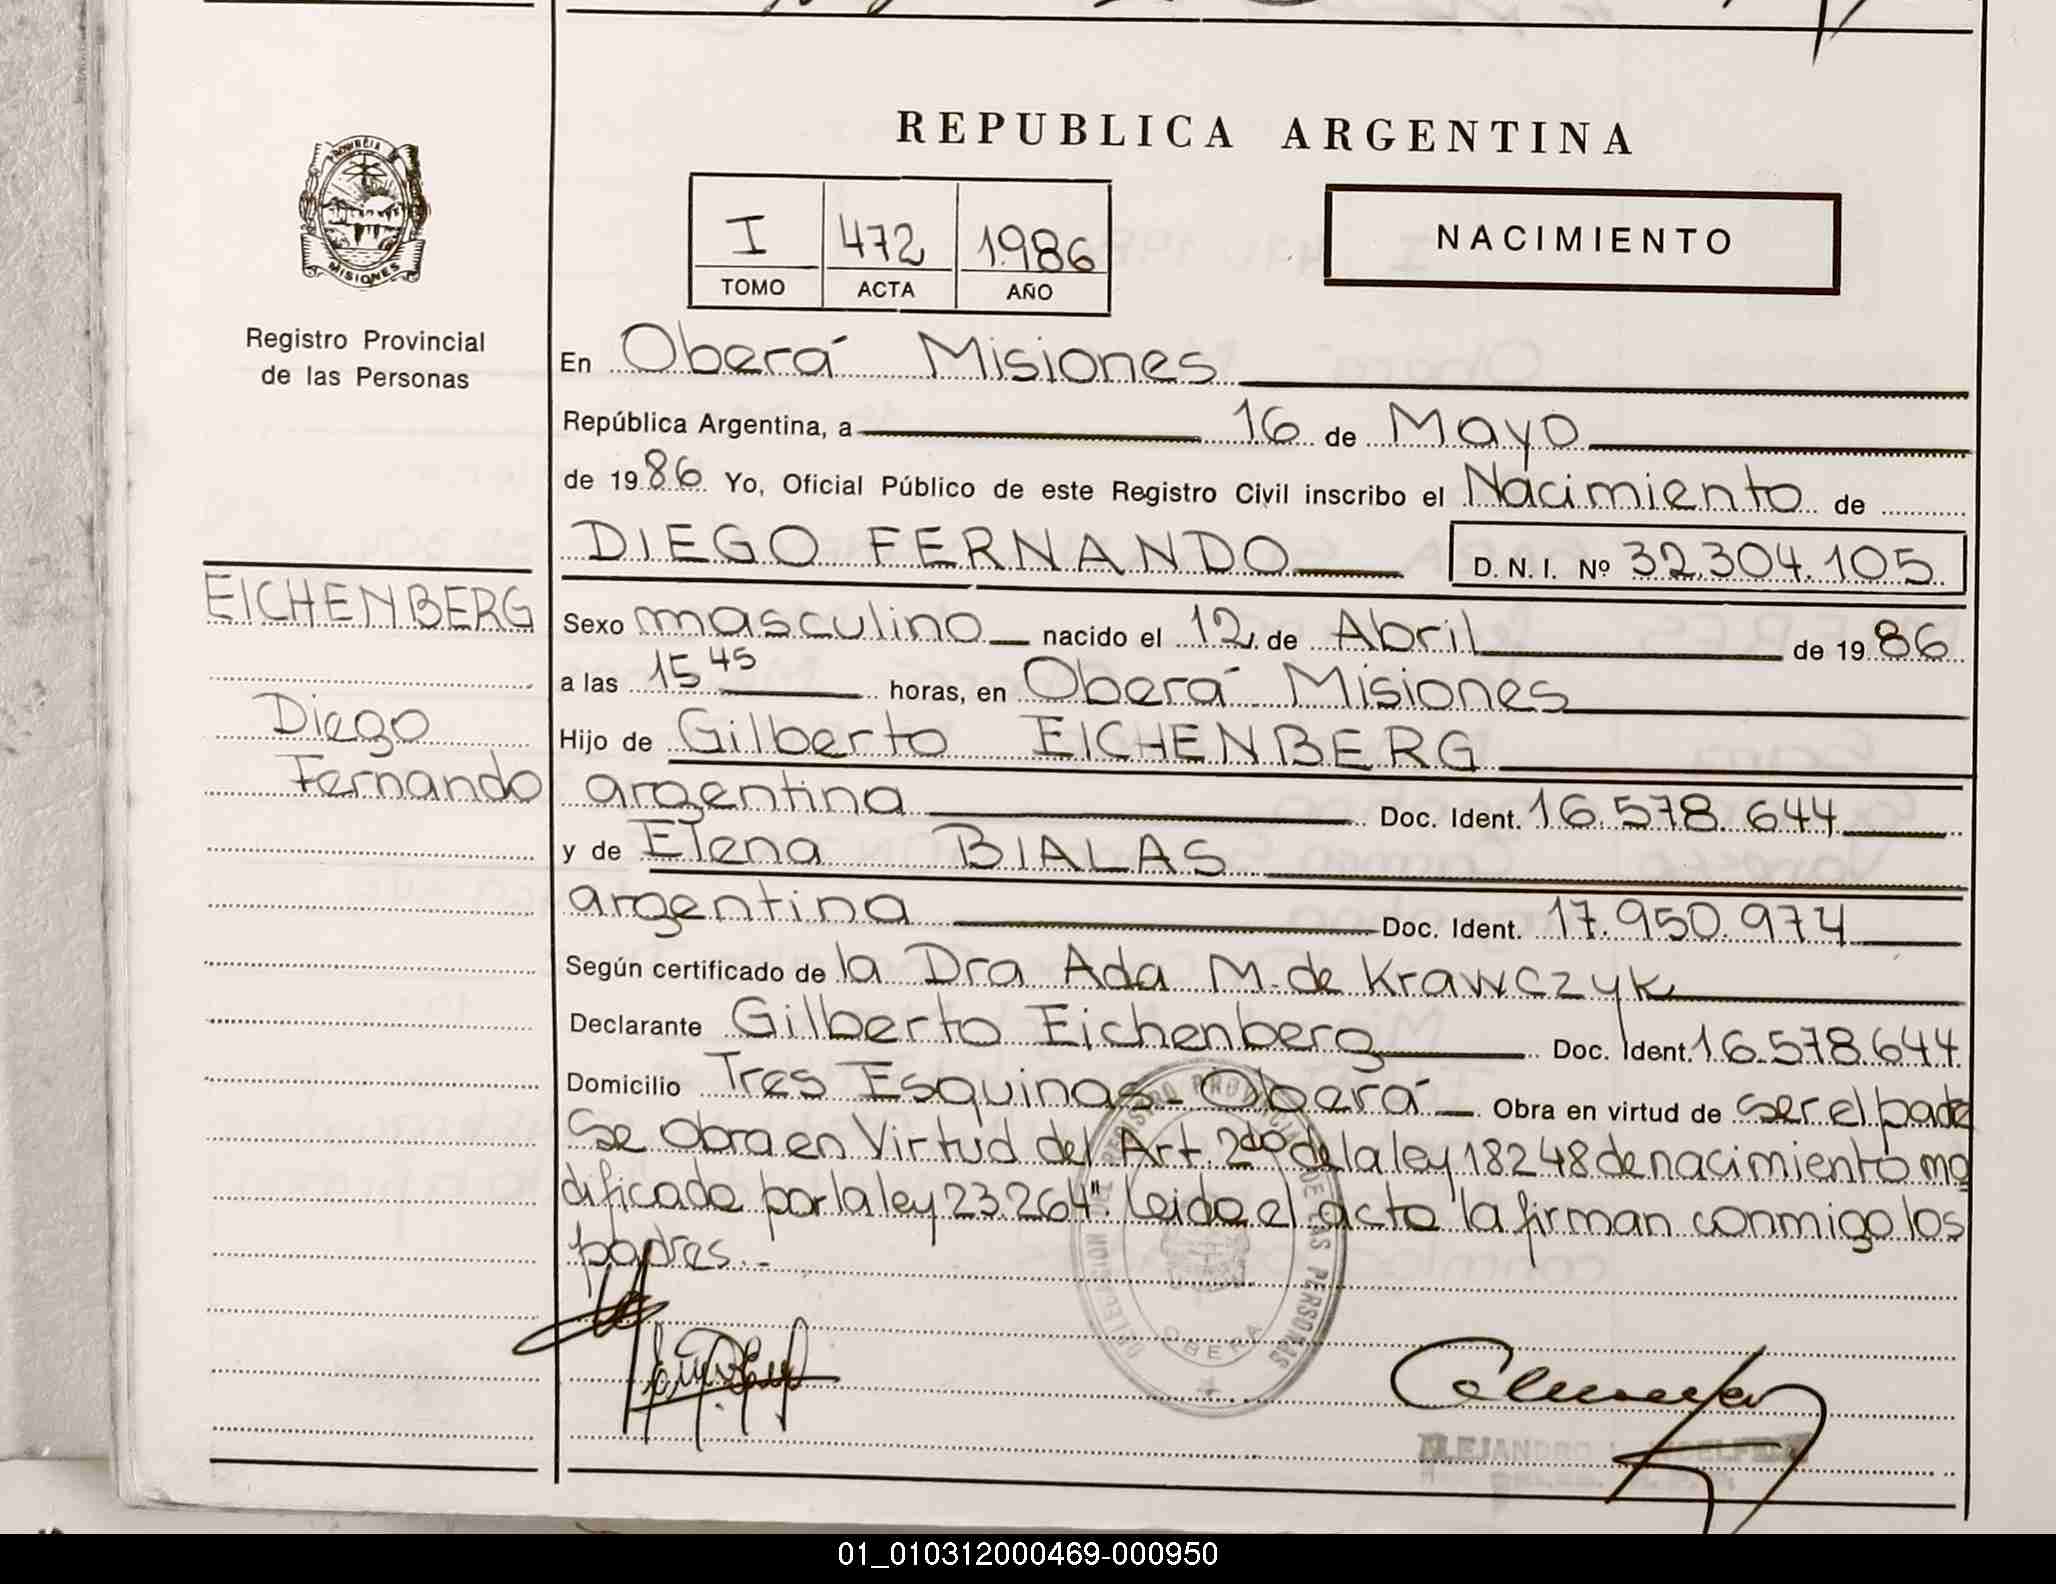 REPUBLICA ARGENTINA
PROVINCIA DE
MISIONES
Registro Provincial
de las Personas
I 472 1986
TOMO ACTA AÑO
NACIMIENTO
En Oberá Misiones
República Argentina, a 16 de Mayo
de 1986 Yo, Oficial Público de este Registro Civil inscribo el Nacimiento de
DIEGO FERNANDO D.N.I. Nº 32.304.105
EICHENBERG
Diego
Fernando
Sexo masculino nacido el 12 de Abril de 1986
a las 15 45 horas, en Oberá Misiones
Hijo de Gilberto EICHENBERG
argentina Doc. Ident. 16.578.644
y de Elena BIALAS
argentina Doc. Ident. 17.950.974
Según certificado de la Dra Ada M. de Krawczyk
Declarante Gilberto Eichenberg Doc. Ident. 16.578.644
Domicilio Tres Esquinas - Oberá Obra en virtud de ser el padre
Se obra en Virtud del Art. 2do de la ley 18248 de nacimiento mo
dificado por la ley 23.264". Leido el acto la firman conmigo los
padres.-
DELEGACION DEL REGISTRO PROVINCIAL DE LAS PERSONAS
OBERA
ALEJANDRO
01_010312000469-000950